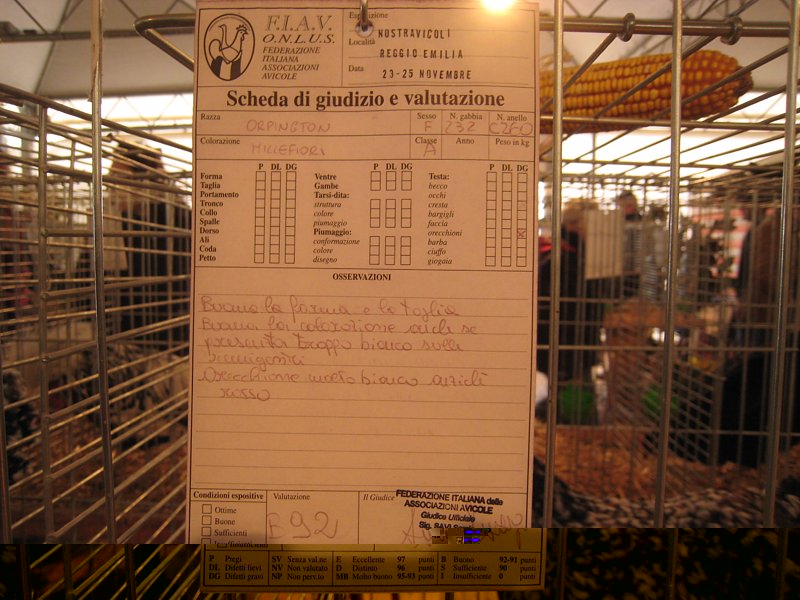 F.I.A.V.
O.N.L.U.S.
FEDERAZIONE
ITALIANA
ASSOCIAZIONI
AVICOLE
Esposizione NOSTRAVICOLI
Località REGGIO EMILIA
Data 23-25 NOVEMBRE
Scheda di giudizio e valutazione
Razza ORPINGTON
Sesso F
N. gabbia 232
N. anello
Colorazione MILLEFIORI
Classe A
Anno
Peso in kg
P DL DG P DL DG P DL DG
Forma Ventre Testa:
Taglia Gambe becco
Portamento Tarsi-dita: occhi
Tronco struttura cresta
Collo colore bargigli
Spalle piumaggio faccia
Dorso Piumaggio: orecchioni x
Ali conformazione barba
Coda colore ciuffo
Petto disegno giogaia
OSSERVAZIONI
Buona la forma e la taglia
Buona la colorazione anche se
presenta troppo bianco sulle
Orecchione molto bianco anziché
rosso
Condizioni espositive Valutazione Il Giudice
Ottime
Buone
Sufficienti
Insufficienti
92
FEDERAZIONE ITALIANA delle
ASSOCIAZIONI AVICOLE
Giudice Ufficiale
Sig.
P Pregi SV Senza val.ne E Eccellente 97 punti B Buono 92-91 punti
DL Difetti lievi NV Non valutato D Distinto 96 punti S Sufficiente 90 punti
DG Difetti gravi NP Non perv.to MB Molto buono 95-93 punti I Insufficiente 0 punti